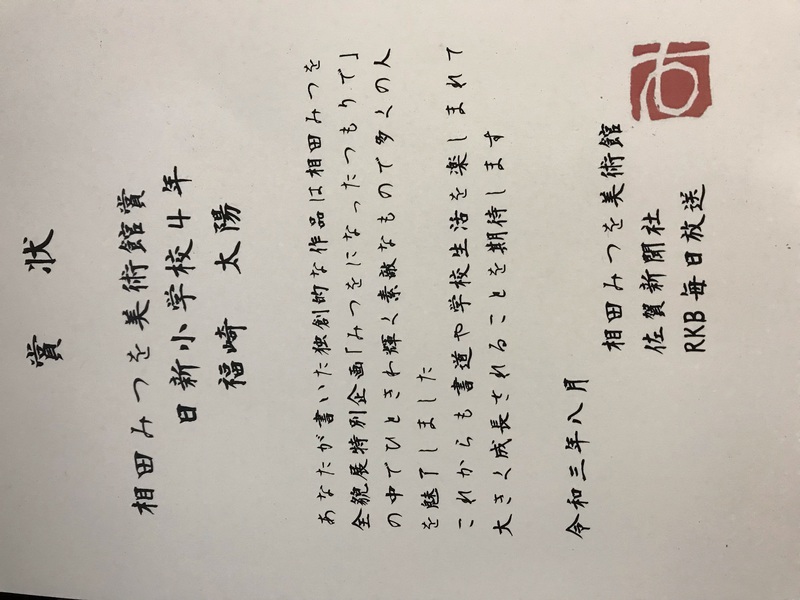 賞状
相田みつを美術館賞
日新小学校4年
福崎 太陽
あなたが書いた独創的な作品は相田みつを
全貌展特別企画「みつをになったつもりで」
の中でひときわ輝く素敵なもので多くの人
を魅了しました
これからも書道や学校生活を楽しまれて
大きく成長されることを期待します
令和三年八月
相田みつを美術館
佐賀新聞社
RKB毎日放送